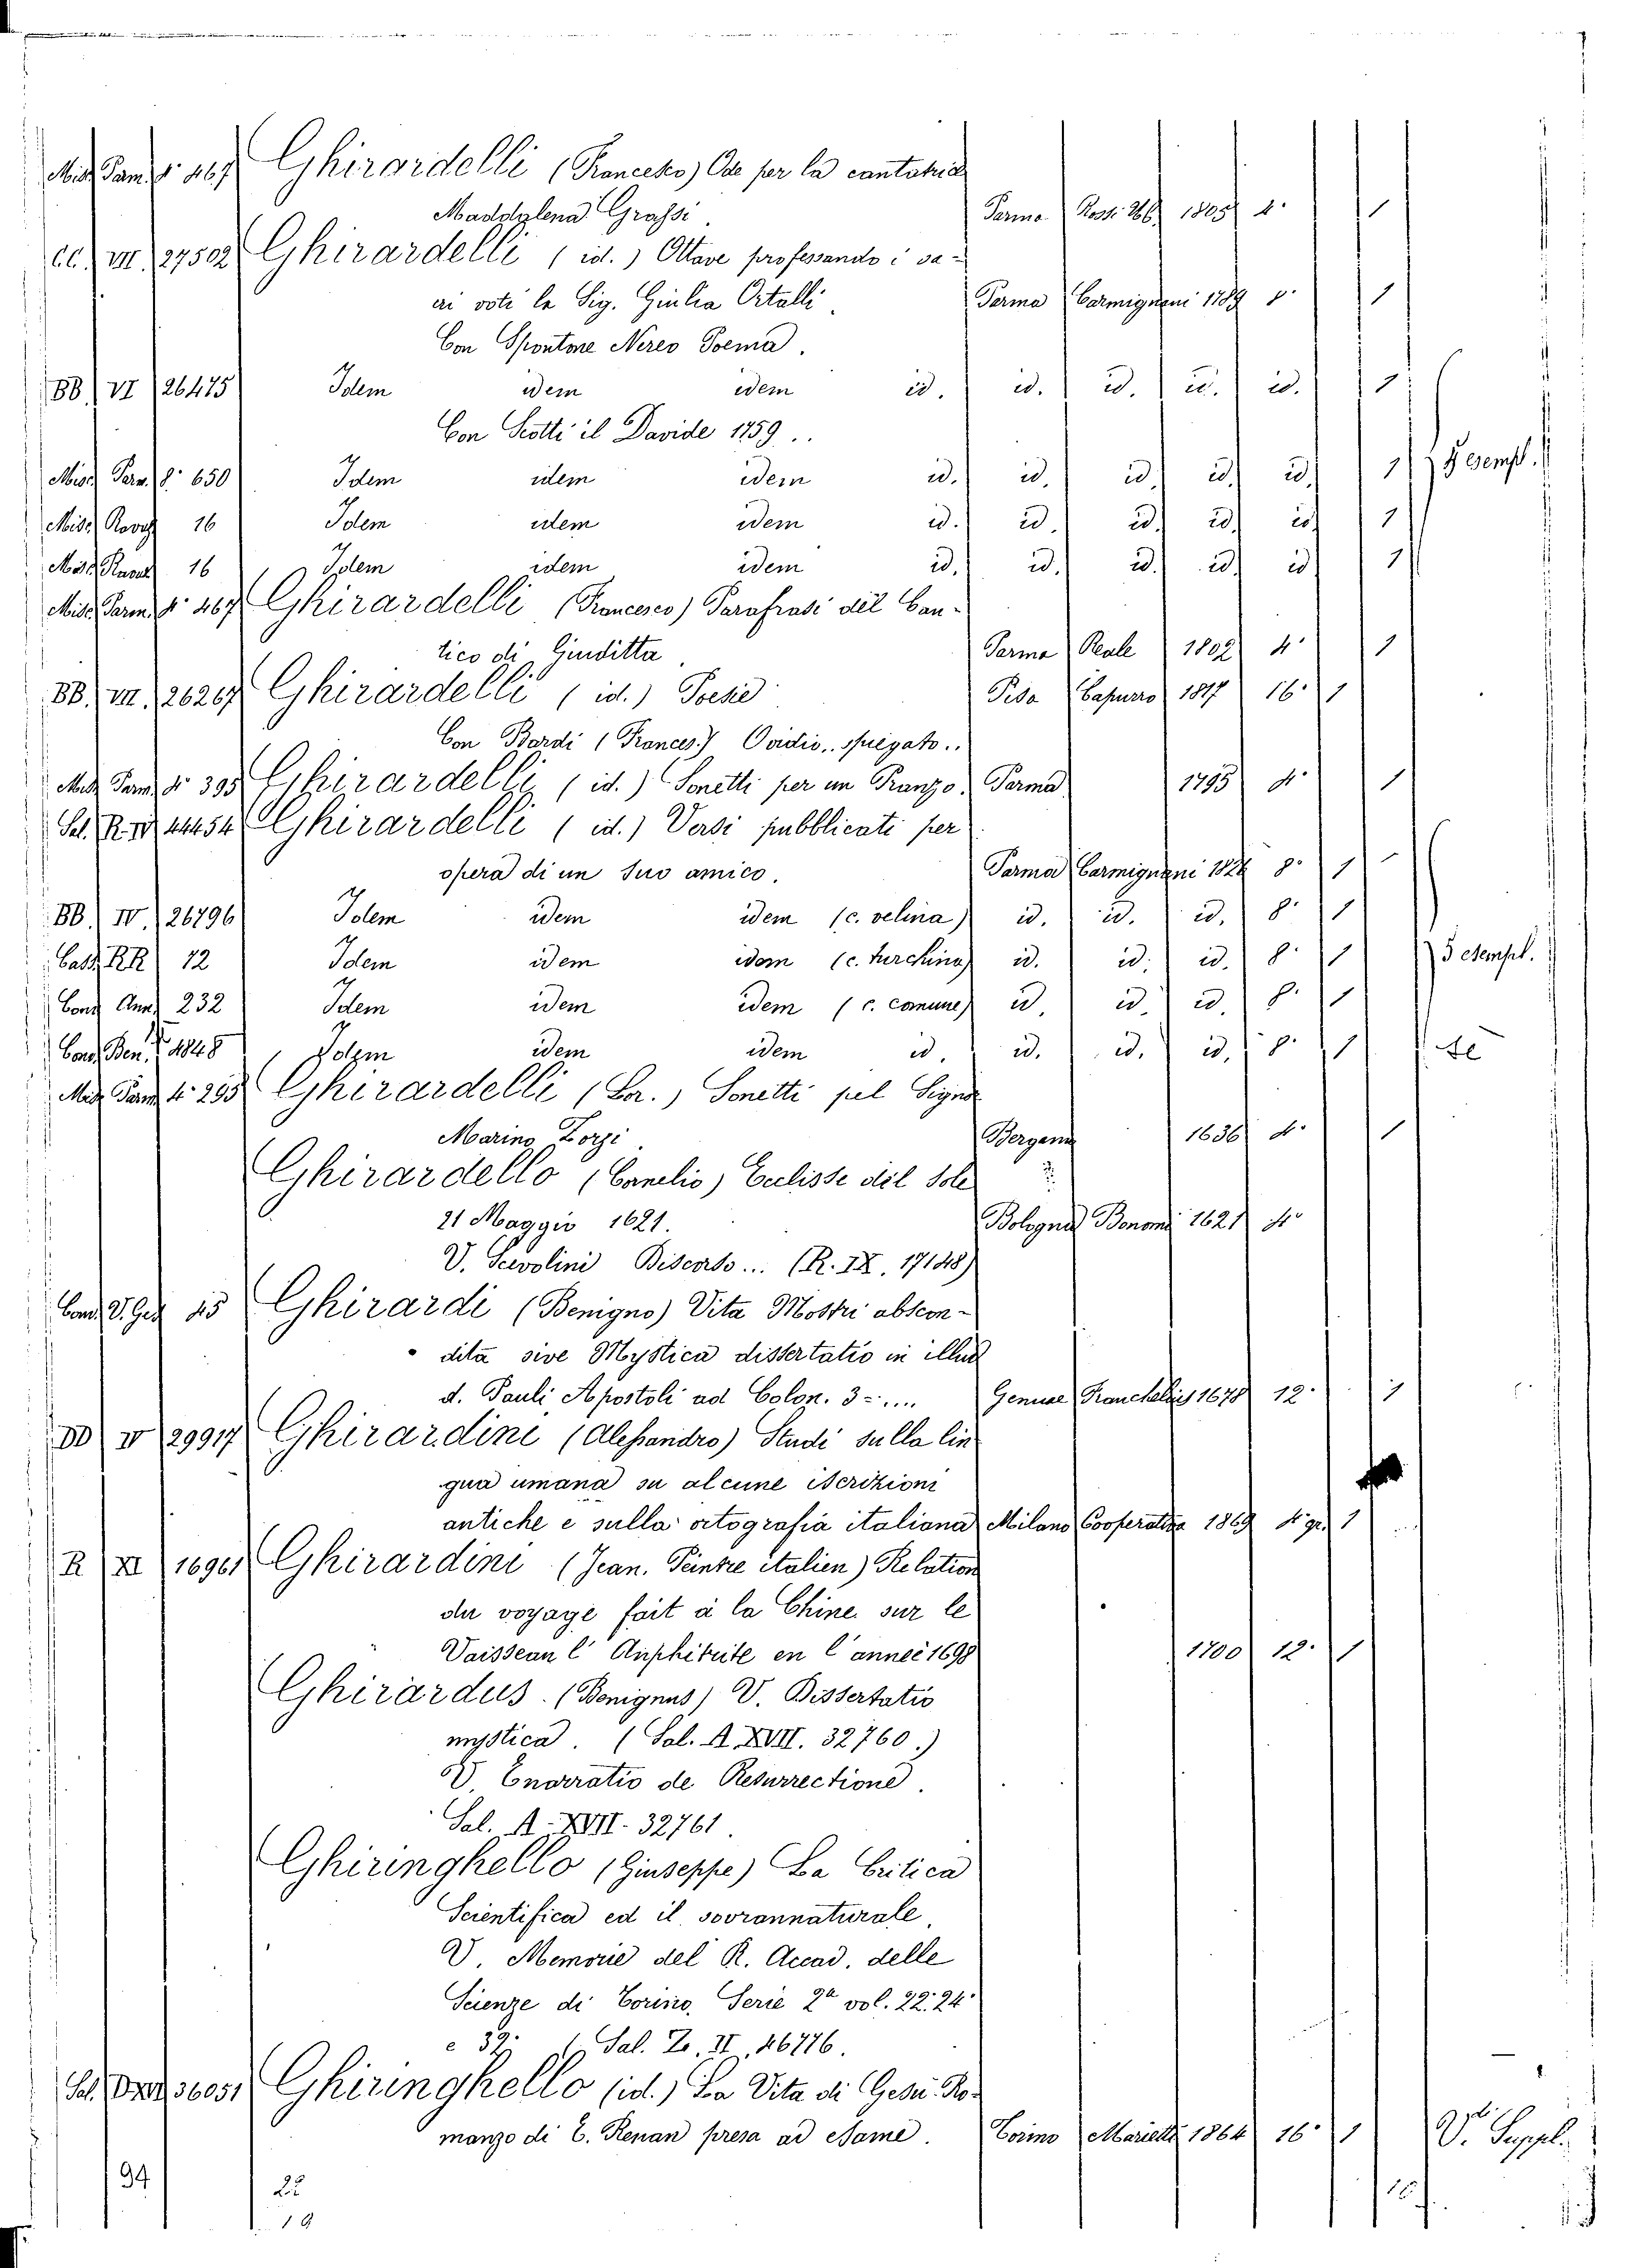 Misc. Parm. 4° 467 Ghirardelli (Francesco) Ode per la cantatrice
Maddalena Grassi. Parma Ross. Ubb. 1805 4° 1
CC. VII. 27502 Ghirardelli (id.) Ottave professando i sa-
cri voti la Sig. Giulia Ortalli. Parma Carmignani 1789 8° 1
Con Spontone Nereo Poema.
BB. VI 26475 Idem idem idem id. id. id. id. id. 1
Con Scotti il Davide 1759..
Misc. Parm. 8° 650 Idem idem idem id. id. id. id. id. 1 esempl.
Misc. 16 Idem idem idem id. id. id. id. id. 1
Misc. 16 Idem idem idem id. id. id. id. id. 1
Misc. Parm. 4° 467 Ghirardelli (Francesco) Parafrasi del Can-
tico di Giuditta Parma Reale 1802 4° 1
BB. VII. 26267 Ghirardelli (id.) Poesie Pisa Capurro 1817 16° 1
Con Bardi (Frances.) Ovidio.. spiegato..
Misc. Parm. 4° 395 Ghirardelli (id.) Sonetti per un Pranzo. Parma 1795 4° 1
Sal. R. IV 44454 Ghirardelli (id.) Versi pubblicati per
opera di un suo amico. Parma Carmignani 8° 1
BB. IV. 26796 Idem idem idem (c. velina) id. id. id. 8° 1
Cass. RR 12 Idem idem idem (c. turchina) id. id. id. 8° 1 5 esempl.
Cons. Ann. 232 Idem idem idem (c. comune) id. id. id. 8° 1
Cons. Ben. 4848 Idem idem idem id. id. id. id. 8° 1 te
Misc. Parm. 4° 295 Ghirardelli (Lor.) Sonetti pel Signor
Marino Zorzi. Bergamo 1636 4° 1
Ghirardello (Cornelio) Ecclisse del Sole
21 Maggio 1621. Bologna Bonomi 1621 4°
V. Scevolini Discorso... (R. IX. 17148)
45 Ghirardi (Benigno) Vita Mostri abscon-
dita sive Mystica dissertatio in illud
d. Pauli Apostoli ad Colon. 3 =.... Genuae Franchelius 1678 12° 1
DD IV 29917 Ghirardini (Alessandro) Studi sulla lin
gua umana su alcune iscrizioni
antiche e sulla ortografia italiana Milano Cooperativa 1869 4° gr. 1
R XI 16961 Ghirardini (Jean. Peintre italien) Relation
du voyage fait à la Chine sur le
Vaissean l' Anphitrite en l'anneè 1698 1700 12° 1
Ghirardus. (Benignus) V. Dissertatio
mystica. (Sal. A. XVII. 32760.)
V. Enarratio de Resurrectione.
Sal. A. XVII. 32761.
Ghiringhello (Giuseppe) La Critica
Scientifica ed il sovrannaturale.
V. Memorie del R. Accad. delle
Scienze di Torino. Serie 2ª vol. 22. 24.
e 32. ( Sal. Z. II. 46776.
Sal. 36051 Ghiringhello (id.) La Vita di Gesù. Ro-
manzo di E. Renan presa ad esame. Torino Marietti 1864 16° 1 V. Suppl.
94
22
19